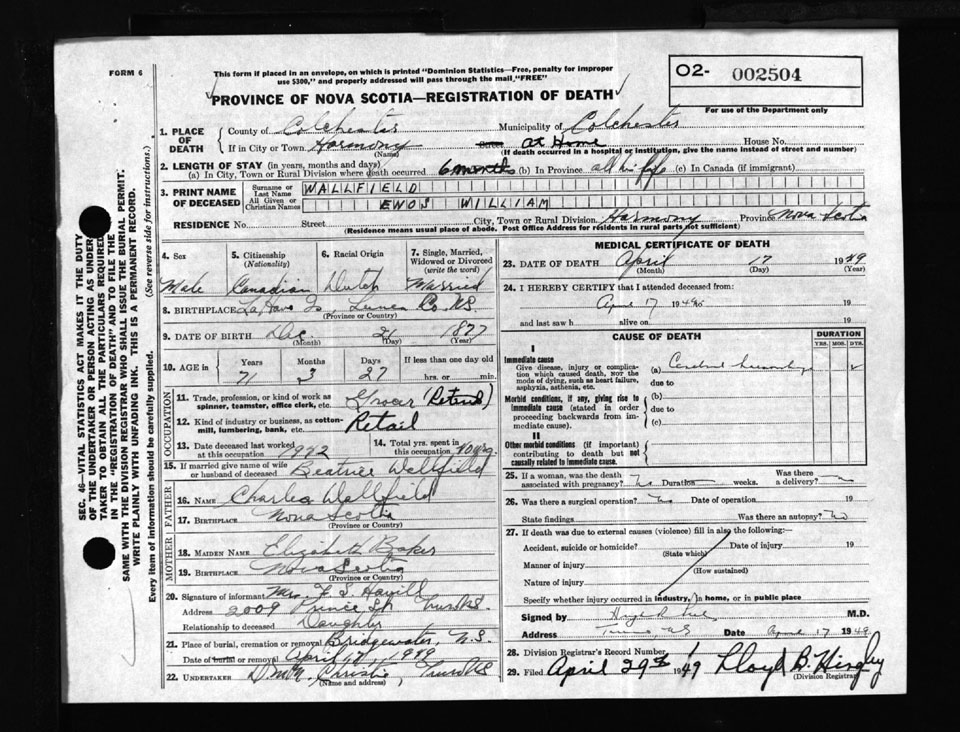 FORM 6
This form if placed in an envelope, on which is printed "Dominion Statistics—Free, penalty for improper
use $300," and properly addressed will pass through the mail, "FREE"
O2- 002504
For use of the Department only
PROVINCE OF NOVA SCOTIA—REGISTRATION OF DEATH
1. PLACE OF DEATH
County of Colchester Municipality of Colchester
If in City or Town Harmony (Name) Street at Home House No.
(If death occurred in a hospital or institution, give the name instead of street and number)
2. LENGTH OF STAY (in years, months and days)
(a) In City, Town or Rural Division where death occurred 6 months (b) In Province all his life (c) In Canada (if immigrant)
3. PRINT NAME OF DECEASED
Surname or Last Name WALLFIELD
All Given or Christian Names ENOS WILLIAM
RESIDENCE No. Street City, Town or Rural Division Harmony Province Nova Scotia
(Residence means usual place of abode. Post Office Address for residents in rural parts not sufficient)
4. Sex Male
5. Citizenship (Nationality) Canadian
6. Racial Origin Dutch
7. Single, Married, Widowed or Divorced (write the word) Married
8. BIRTHPLACE LaHave Is Lunen Co. N.S.
(Province or Country)
9. DATE OF BIRTH Dec. 21 1877
(Month) (Day) (Year)
10. AGE in Years 71 Months 3 Days 27 If less than one day old hrs. or min.
OCCUPATION
11. Trade, profession or kind of work as spinner, teamster, office clerk, etc. Grocer (Retired)
12. Kind of industry or business, as cotton-mill, lumbering, bank, etc. Retail
13. Date deceased last worked at this occupation 1942
14. Total yrs. spent in this occupation 40 yrs.
15. If married give name of wife or husband of deceased Beatrice Wallfield
FATHER
16. NAME Charles Wallfield
17. BIRTHPLACE Nova Scotia
(Province or Country)
MOTHER
18. MAIDEN NAME Elizabeth Baker
19. BIRTHPLACE Nova Scotia
(Province or Country)
20. Signature of informant Mrs. F. S. Havill
Address 2009 Prince St. Truro N.S.
Relationship to deceased Daughter
21. Place of burial, cremation or removal Bridgewater, N.S.
Date of burial or removal April 17, 1949
22. UNDERTAKER Christie, Truro N.S.
(Name and address)
MEDICAL CERTIFICATE OF DEATH
23. DATE OF DEATH April 17 1949
(Month) (Day) (Year)
24. I HEREBY CERTIFY that I attended deceased from:
April 7 19 to 19
and last saw h alive on 19
CAUSE OF DEATH
DURATION
YRS. MOS. DYS.
I
Immediate cause
Give disease, injury or complication which caused death, NOT the mode of dying, such as heart failure, asphyxia, asthenia, etc.
(a) Cerebral hemorrhage
due to
Morbid conditions, if any, giving rise to immediate cause (stated in order proceeding backwards from immediate cause).
(b)
due to
(c)
II
Other morbid conditions (if important) contributing to death but not causally related to immediate cause.
25. If a woman, was the death associated with pregnancy? No Duration weeks. Was there a delivery?
26. Was there a surgical operation? No Date of operation 19
State findings Was there an autopsy? No
27. If death was due to external causes (violence) fill in also the following:
Accident, suicide or homicide? (State which) Date of injury 19
Manner of injury (How sustained)
Nature of injury
Specify whether injury occurred in industry, in home, or in public place
Signed by M.D.
Address Truro N.S. Date April 17 1949
28. Division Registrar's Record Number
29. Filed April 29th 1949 Lloyd B. Hingley
(Division Registrar)
SEC. 46—VITAL STATISTICS ACT MAKES IT THE DUTY
OF THE UNDERTAKER OR PERSON ACTING AS UNDERTAKER
TO OBTAIN ALL THE PARTICULARS REQUIRED
IN THE "REGISTRATION OF DEATH" AND TO FILE THE
SAME WITH THE DIVISION REGISTRAR WHO SHALL ISSUE THE BURIAL PERMIT.
WRITE PLAINLY WITH UNFADING INK. THIS IS A PERMANENT RECORD.
Every item of information should be carefully supplied. (See reverse side for instructions.)